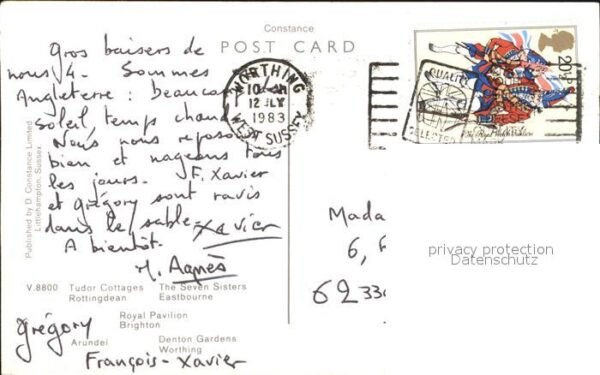 Constance
POST CARD
Gros baisers de
nous 4. Sommes
Angleterre : beaucoup
soleil temps chaud
Nous nous reposons
bien et nageons tous
les jours. F. Xavier
et grégory sont ravis
dans le sable.
Xavier
A bientôt.
M. Agnès
grégory
François-Xavier
Published by D. Constance Limited
Littlehampton, Sussex.
V.8800 Tudor Cottages The Seven Sisters
Rottingdean Eastbourne
Royal Pavilion
Brighton
Arundel Denton Gardens
Worthing
WORTHING
12 JLY
1983
WEST SUSSEX
QUALITY
20½P
Mada
6,
62330
privacy protection
Datenschutz